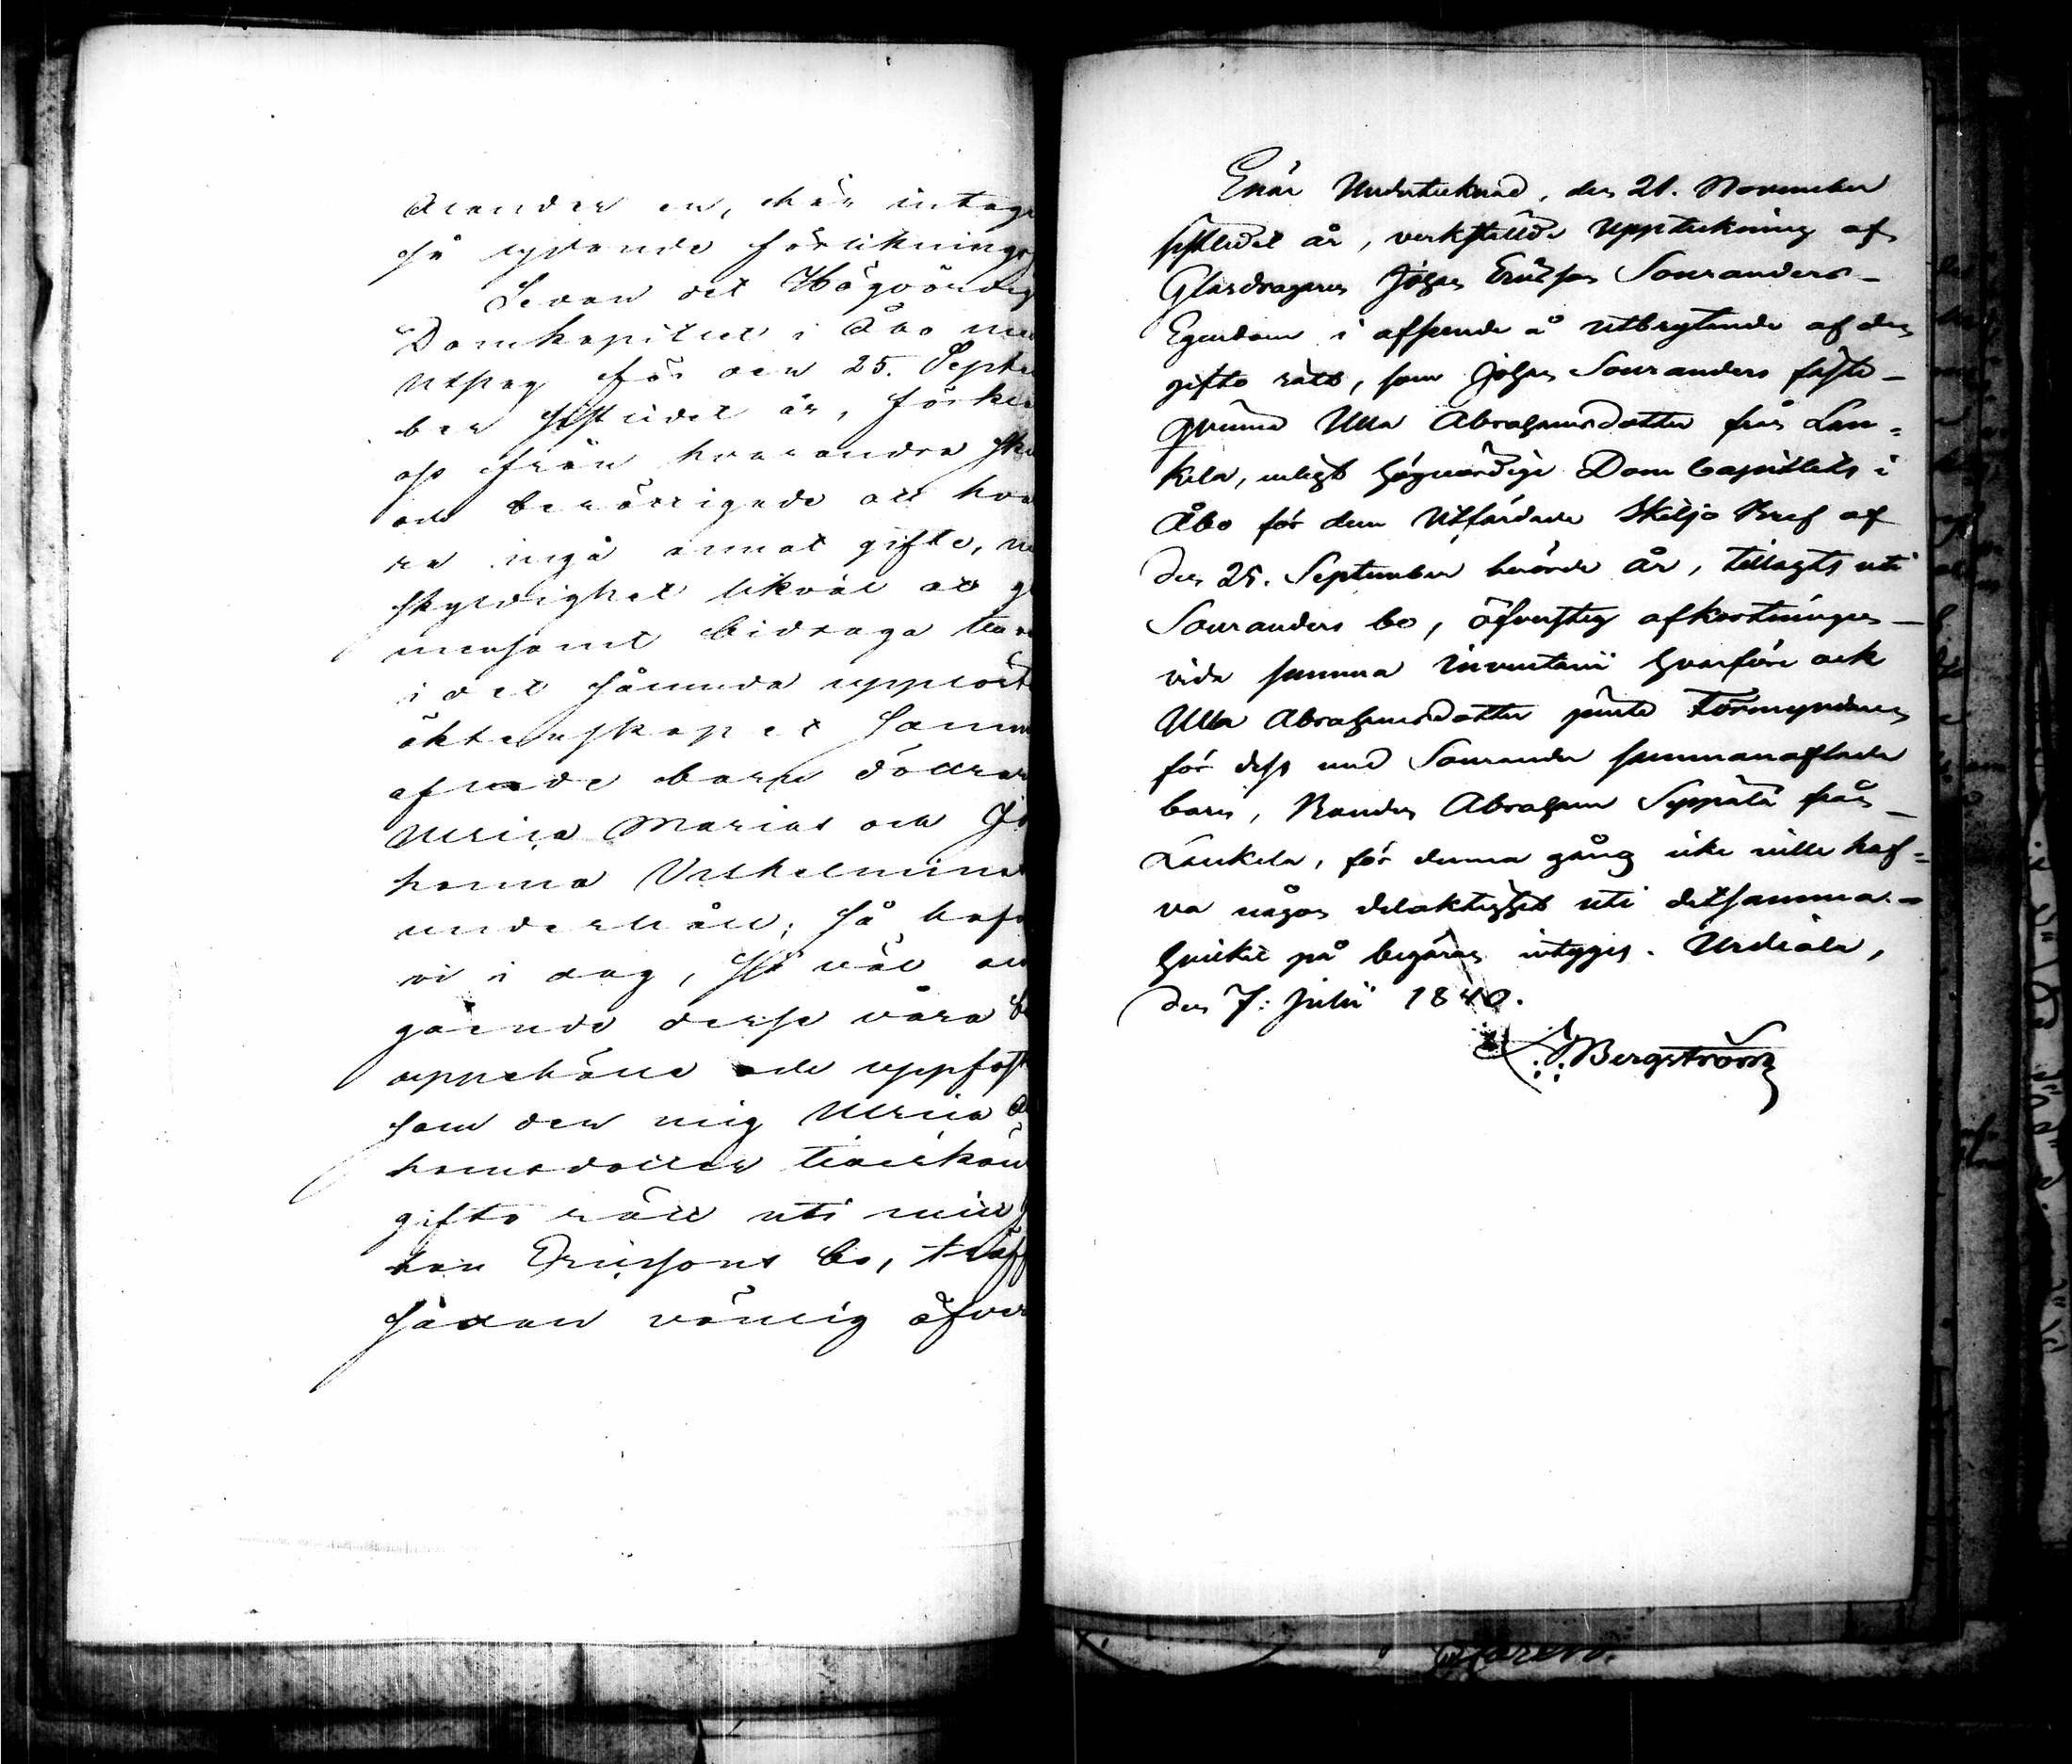 ålander en, här intage
så lydande Förliknings
Sedan det Högvördig
Domkapitlet i Åbo me
Utslag för den 25. Septe
ber sistlidet år, förkla
oss från hvarandra ski
och berättigade att hva
ra ingå annat gifte, m
skyldighet likväl at ge
mensamt bidraga till
i det sålunda upplöst
äktenskapet samm
aflade barn döttrar
Ulrica Marias och Jo
hanna Vilhelmina
underhåll; så hafv
vi i dag, så väl an
gående desse våra b
uppehälle och uppfost
som den mig Ulrica A
hamsdotter tillkom
gifto rätt uti mitt
han Ericssons bo, träff
sådan vänlig öfver
Enär Undertecknad, den 21. November
sistledet år, verkställde uppteckning af
Glasdragaren Johan Ericsson Souranders
Egendom i afseende å utbrytande af den
gifto rätt, som Johan Souranders fäste-
qvinna Ulla Abrahamsdotter från Lau-
kela, enligt högvördige Dom Capitlets i
Åbo för dem utfärdade Skiljo Bref af
den 25. September berörde år, tillagts uti
Souranders bo, öfversteg afkortningen
vida summa inventarii hvarföre ock
Ulla Abrahamsdotter jemte Förmyndaren
för dess med Sourander sammanaflade
barn, Bonden Abraham Seppälä från
Laukela, för denna gång icke ville haf-
va någon delaktighet uti detsamma.
hvilket på begäran intyges. Urdiala,
den 7: Julii 1840.
Bergström